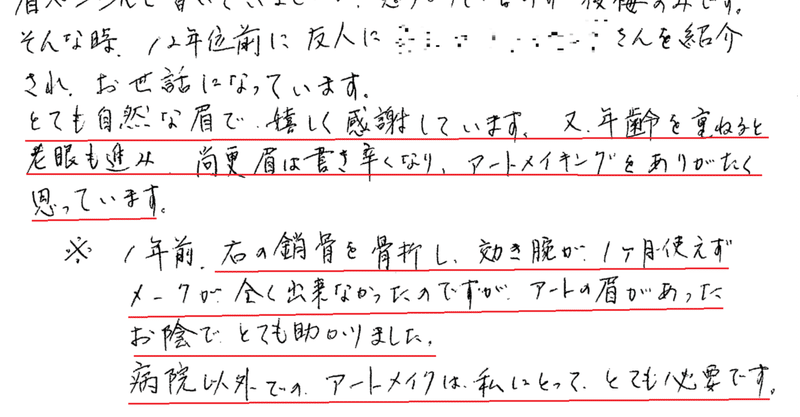 そんな時、12年位前に友人に さんを紹介
され、お世話になっています。
とても自然な眉で、嬉しく感謝しています。又、年齢を重ねると
老眼も進み、尚更眉は書き辛くなり、アートメイキングをありがたく
思っています。
※ 1年前、右の鎖骨を骨折し、効き腕が、1ヶ月使えず
メークが、全く出来なかったのですが、アートの眉があった
お陰で、とても助かりました。
病院以外での、アートメイクは、私にとって、とても必要です。